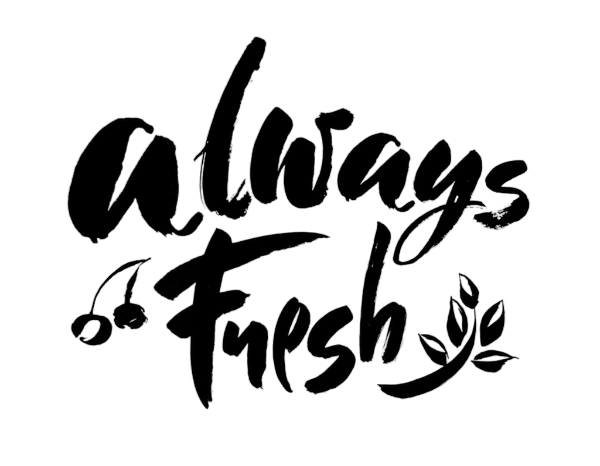 always
Fresh